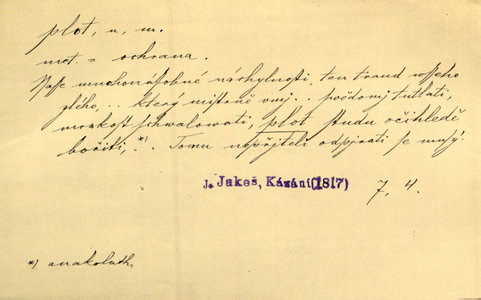 plot, u, m.
met. = ochrana.
Naše mnohonásobné náchylnosti, ten trand všeho
zlého, .. který mistrně umj .. pőědonj tutlati,
mrzkost schwalowati, plot studu očihledě
bořiti, *) .. Tomu nepřjteli odpjrati se musý.
J. Jakeš, Kázání (1817) 7, 4.
*) anakoluth,